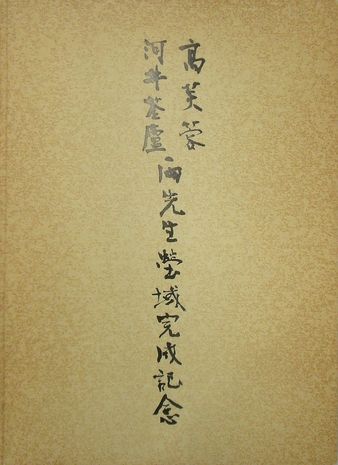 高芙蓉
河井荃廬
両先生塋域完成記念